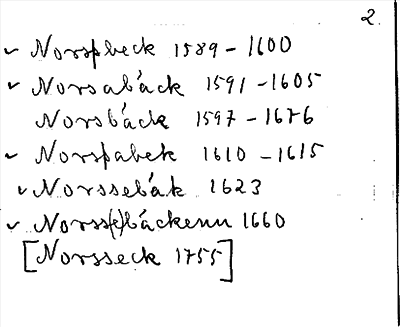 2.
✓ Norspbeck 1589-1600
✓ Norsabäck 1591-1605
Norsbäck 1597-1676
✓ Norspabek 1610-1615
✓ Norssebäk 1623
✓ Norss(e)bäckenn 1660
[Norsseck 1755]